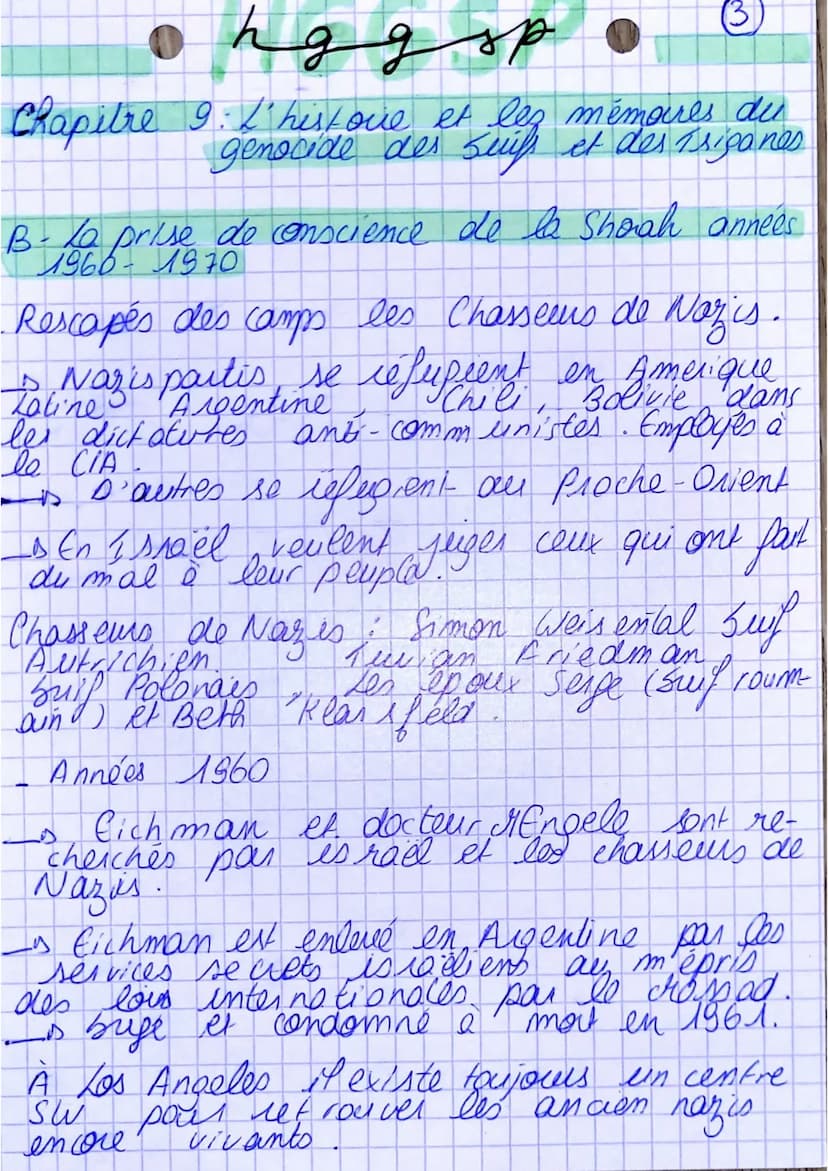 3
hggsp
Chapitre 9 : L'histoire et les mémoires du
génocide des Juifs et des Tsiganes
B- La prise de conscience de la Shoah années
1960- 1970
Rescapés des camps les Chasseurs de Nazis.
→ Nazis partis se réfugient en Amérique
Latine Argentine, Chili, Bolivie dans
les dictatures anti-communistes. Employés à
la CIA.
→ D'autres se réfugient au Proche-Orient
→ En Israël veulent juger ceux qui ont fait
du mal à leur peuple.
Chasseurs de Nazis : Simon Weisental Juif
Autrichien. Tuvian Friedman,
Juif Polonais, Les époux Serge (Juif roum-
ain) et Beth Klarsfeld.
- Années 1960
→ Eichman et docteur MEngele sont re-
cherchés par israël et les chasseurs de
Nazis.
→ Eichman est enlevé en Argentine par les
services secrets israëliens au mépris
des lois internationales par le Mossad.
→ Jugé et condamné à mort en 1961.
À Los Angeles il existe toujours un centre
SW pour retrouver les ancien nazis
encore vivants.